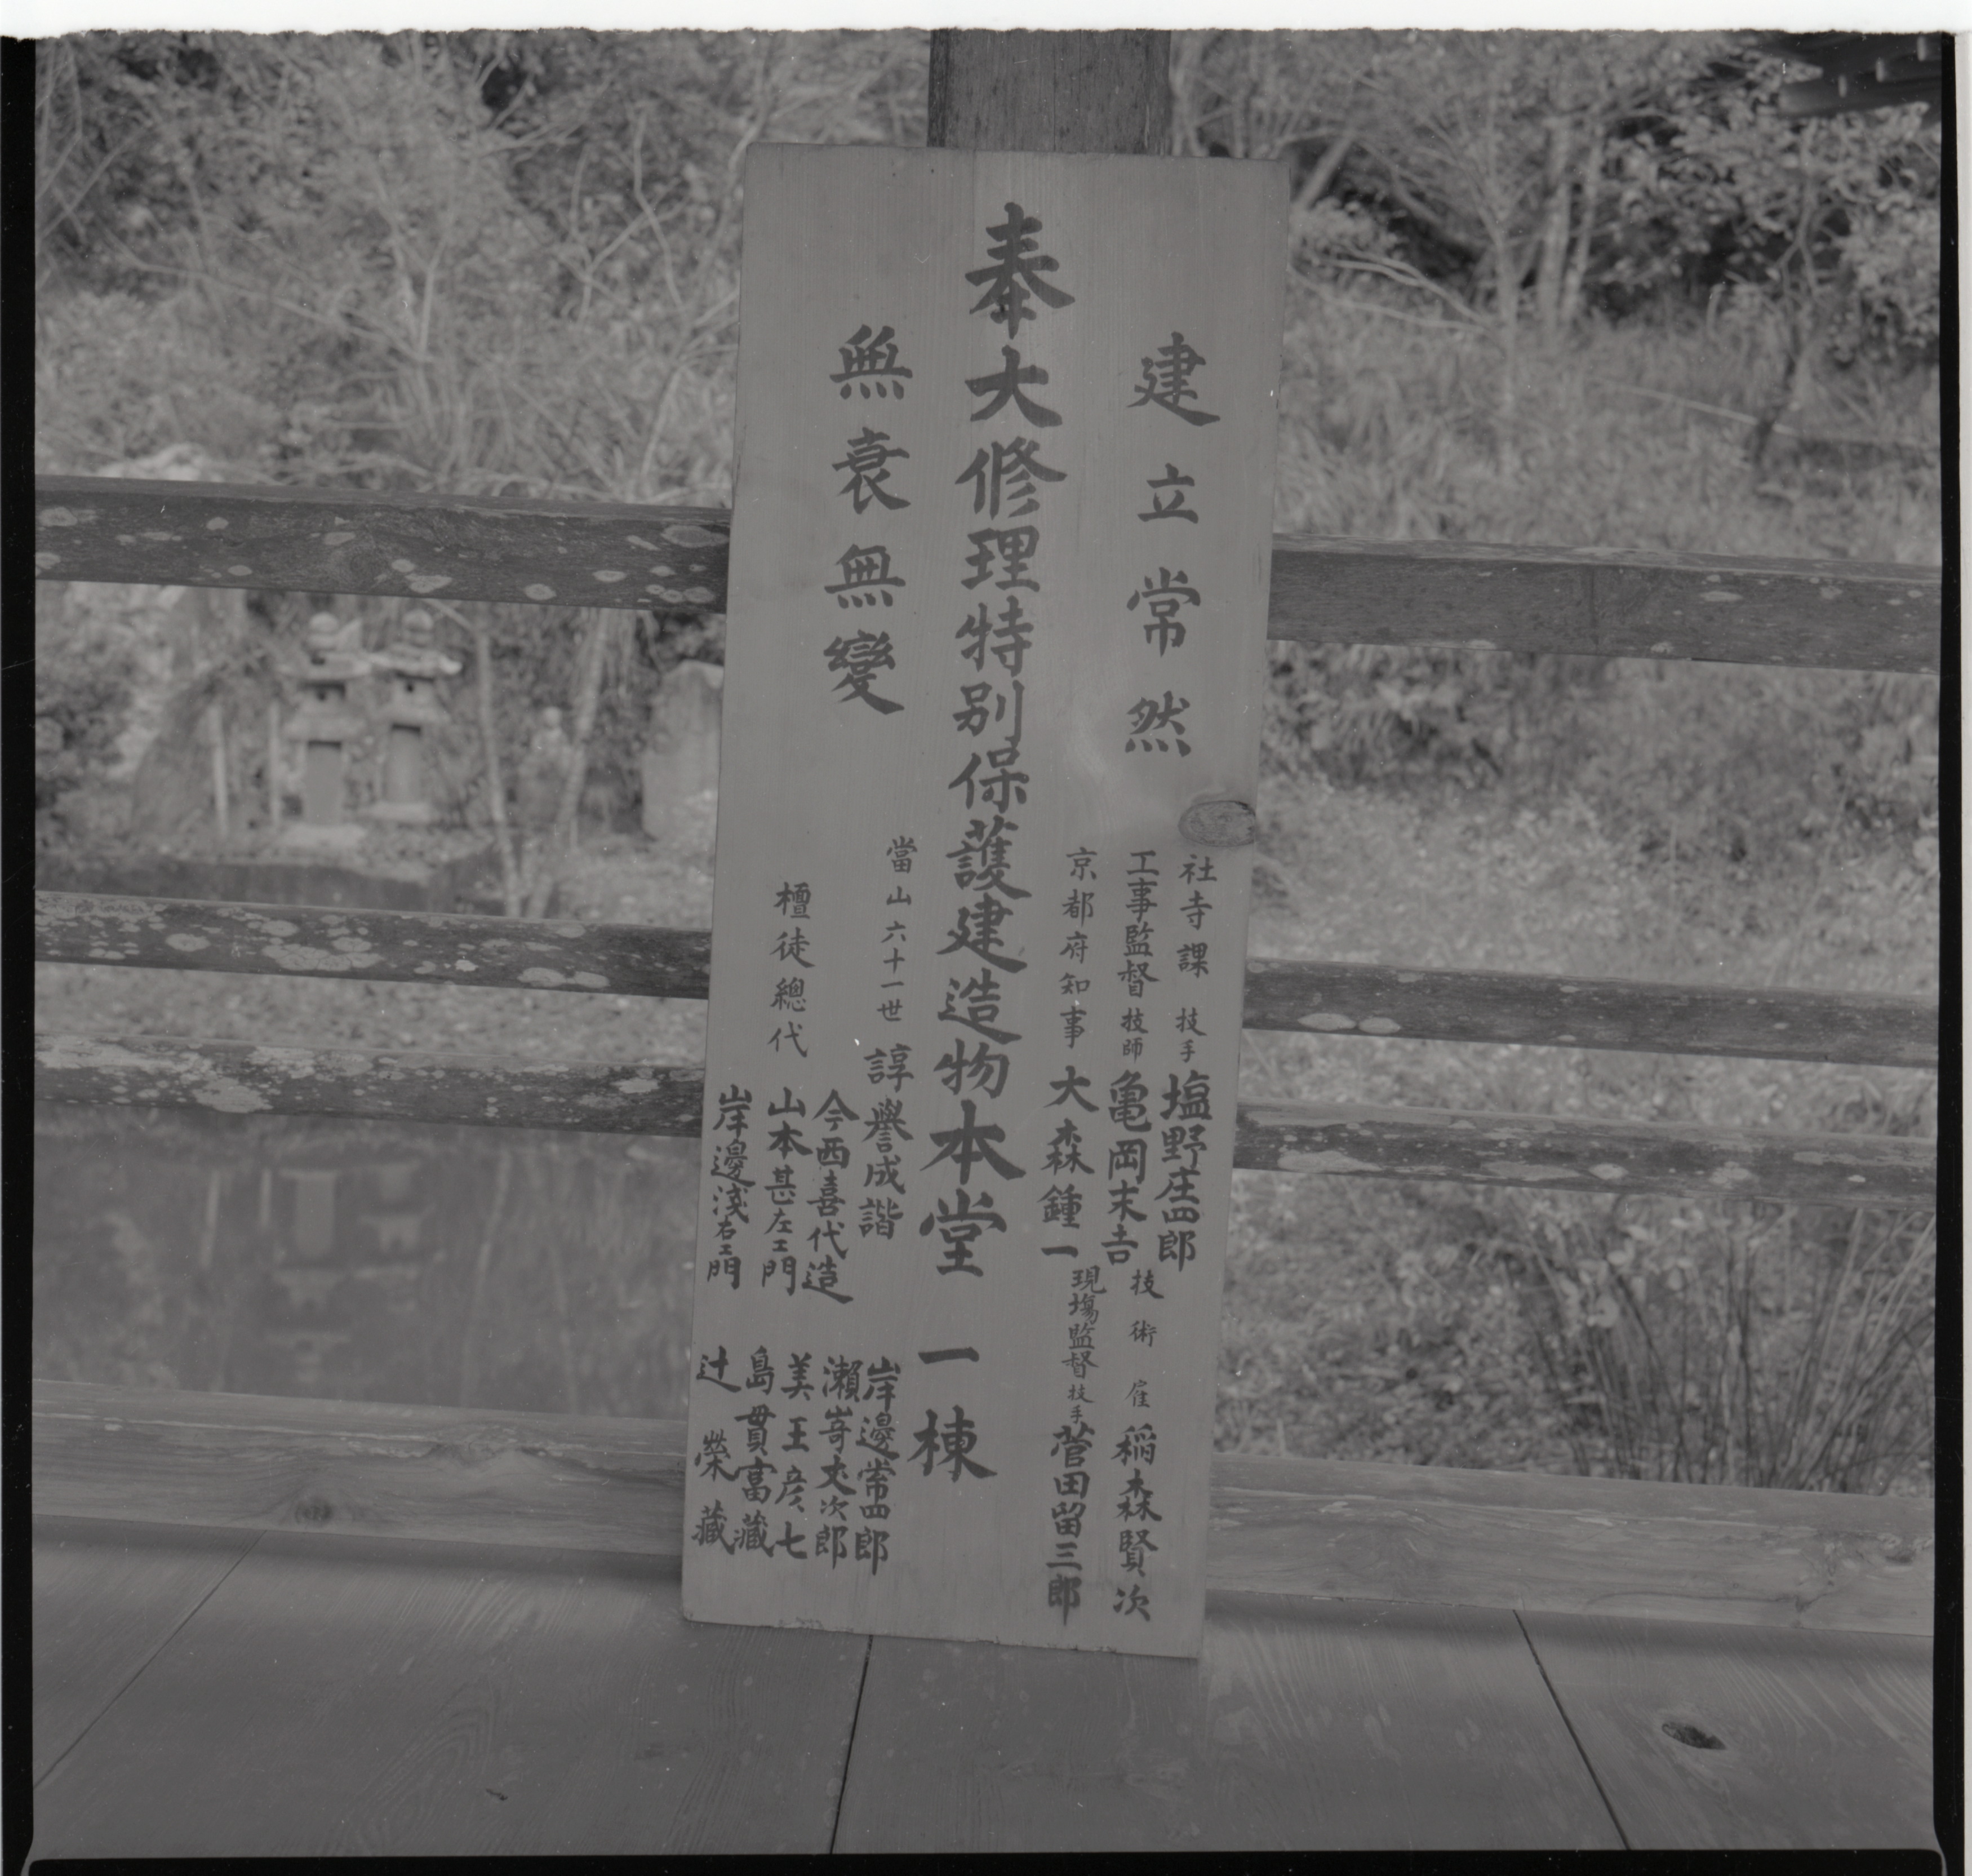 建立常然
社寺課 技手 塩野庄四郎
工事監督 技師 亀岡末吉
技術雇 稲森賢次
京都府知事 大森鍾一
現場監督 技手 菅田留三郎
奉大修理特別保護建造物本堂 一棟
無衰無變
當山六十一世 諄譽成諧
岸邊常四郎
今西喜代造
瀬嵜丈次郎
檀徒總代 山本甚左エ門
美王彦七
岸邊淺右エ門
島貫富藏
辻榮藏